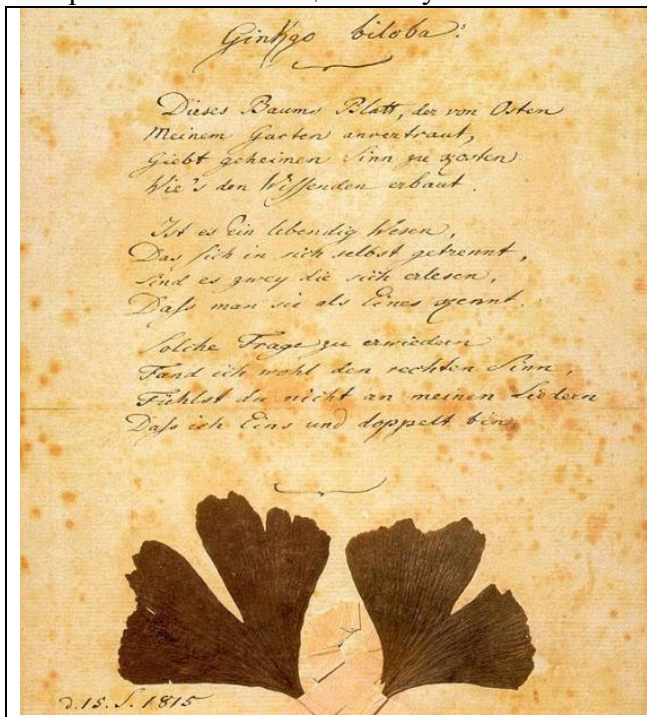 Ginkgo biloba.
Dieses Baums Blatt, der von Osten
Meinem Garten anvertraut,
Giebt geheimen Sinn zu kosten
Wie's den Wissenden erbaut.
Ist es Ein lebendig Wesen,
Das sich in sich selbst getrennt,
Sind es zwey die sich erlesen,
Dass man sie als Eines kennt.
Solche Frage zu erwiedern
Fand ich wohl den rechten Sinn,
Fühlst du nicht an meinen Liedern
Dass ich Eins und doppelt bin.
d. 15. S. 1815